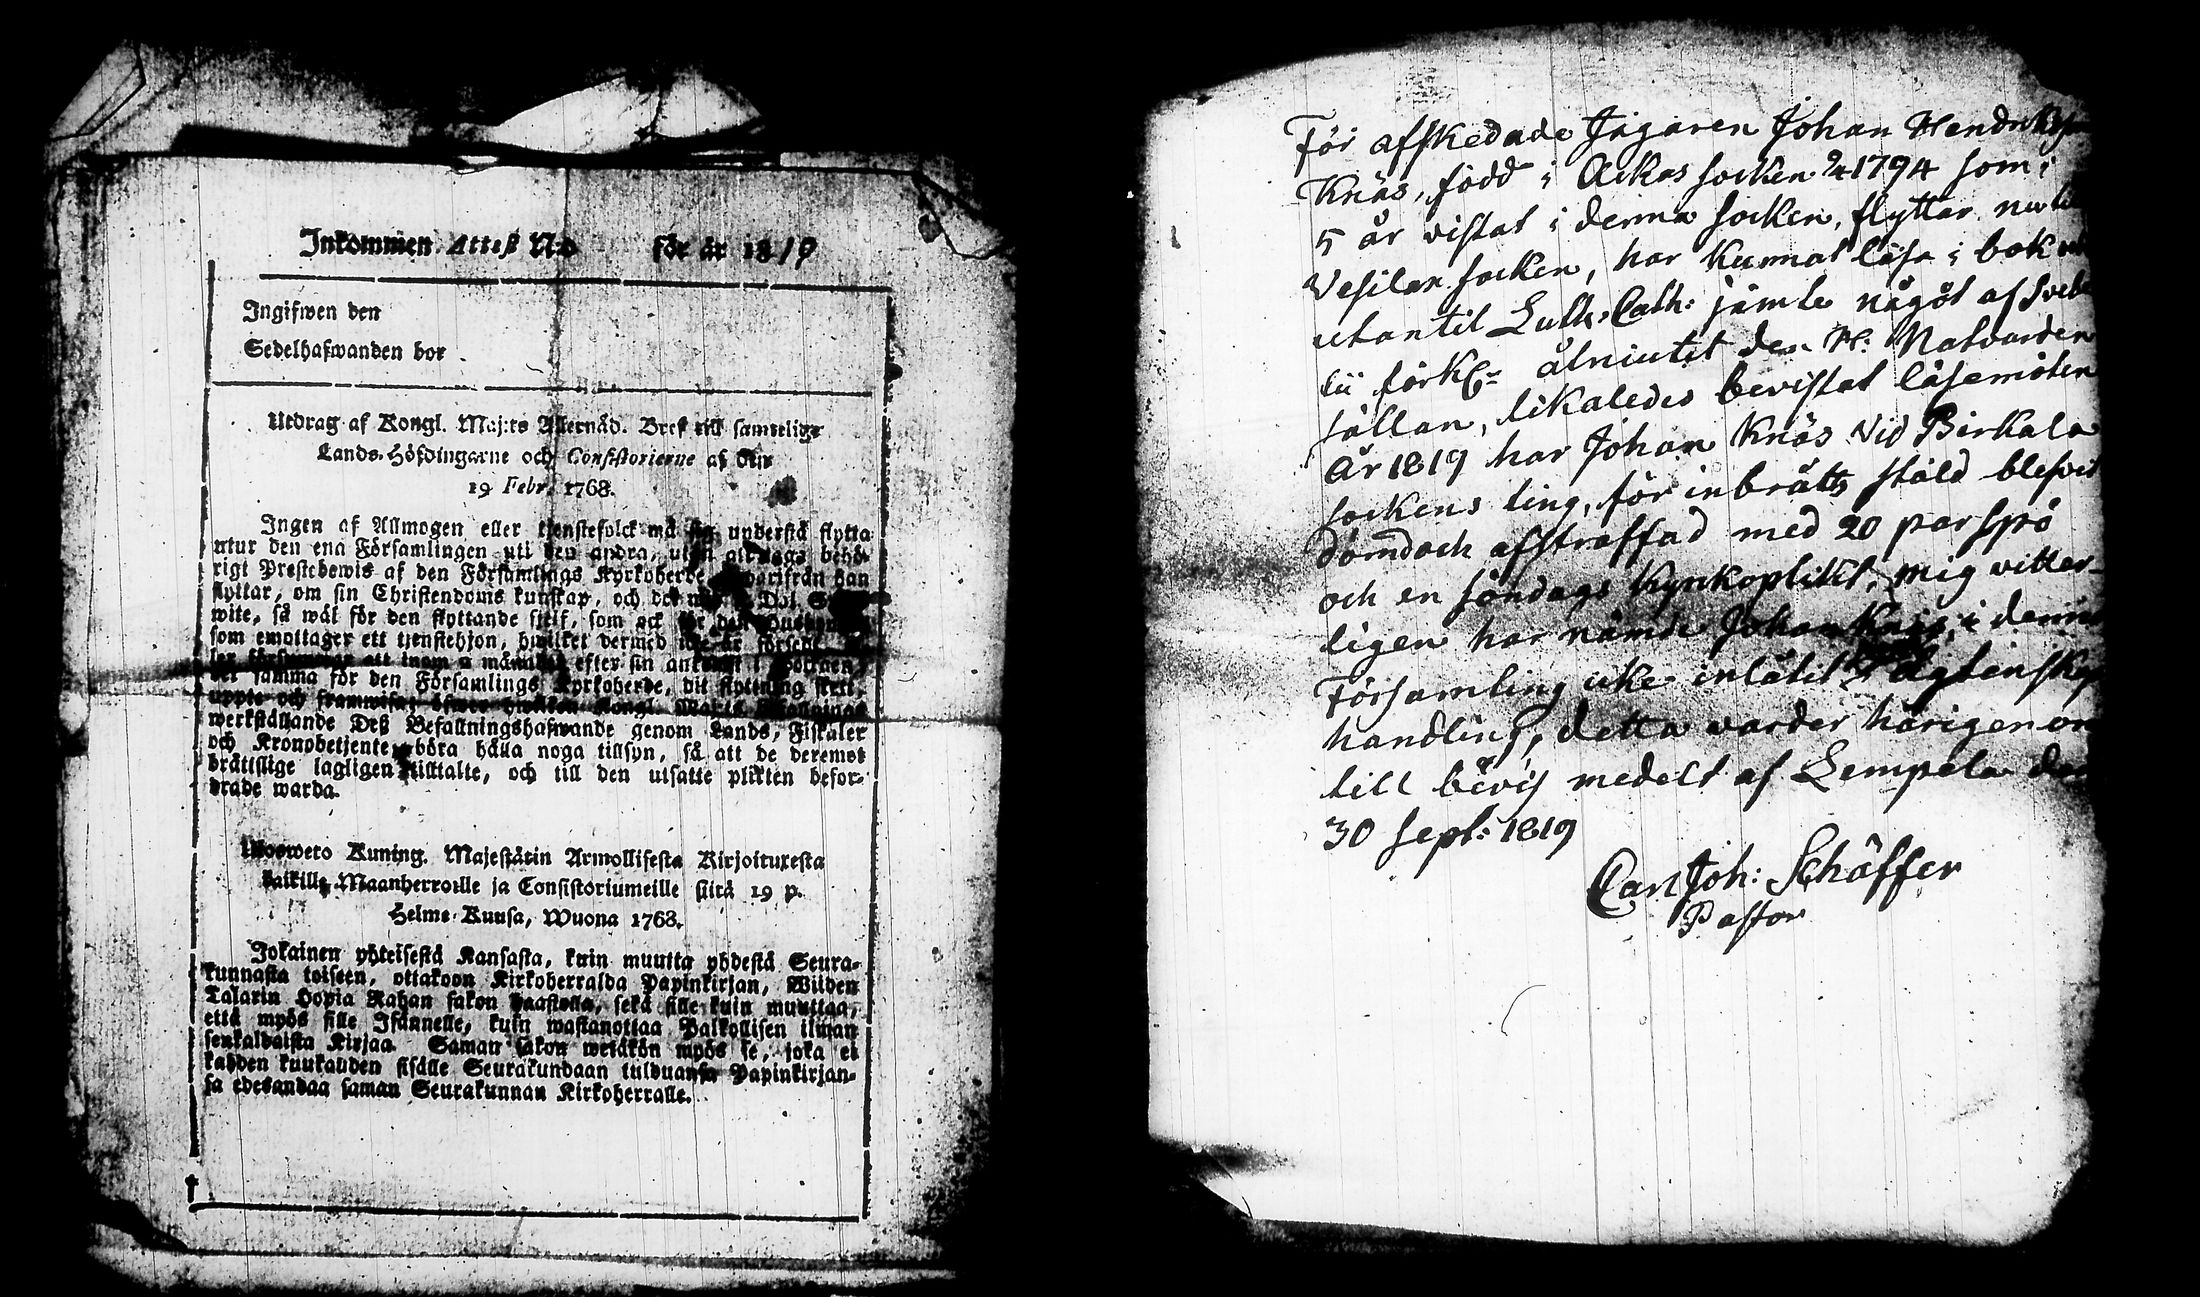 Inkommen Attest N:o för år 1819
Ingifwen den
Sedelhafwanden bor
Utdrag af Kongl. Maj:ts Allernåd. Bref till samtelige
Lands-Höfdingarne och Consistorierne af den
19 Febr. 1768.
Ingen af Allmogen eller tjenstefolck må sig understå flytta
utur den ena Församlingen uti den andra, utan at taga behö-
rigt Prestebewis af den Församlings Kyrkoherde, hwarifrån han
flyttar, om sin Christendoms kunskap, och det wid 2 Dal. S
wite, så wäl för den flyttande sjelf, som ock för den
som emottager ett tjenstehjon, hwilket dermed icke är försedt
ler försummar att inom 2 månader efter sin ankomst i
det samma för den Församlings Kyrkoherde, dit flyttning skett,
uppte och framwisa; öfwer hwilken Kongl. Maj:ts Befallnings
werkställande Deß Befallningshafwande genom Lands-Fiskaler
och Kronobetjente böra hålla noga tillsyn, så att de deremot
brättslige lagligen tilltalte, och till den utsatte plikten befor-
drade warda.
Ulosweto Kuning. Majestätin Armollisesta Kirjoituxesta
kaikille Maanherroille ja Consistoriumeille siitä 19 p.
Helme-Kuusa, Wuona 1768.
Jokainen yhteisestä Kansasta, kuin muutta yhdestä Seura-
kunnasta toiseen, ottakoon Kirkoherralda Papinkirjan, Wiiden
Talarin Hopia Rahan sakon haastolla, sekä sille kuin muuttaa,
että myös sille Isännelle, kuin wastanottaa Palkollisen ilman
senkaldaista Kirjaa. Saman sakon wetäkön myös se, joka ei
kahden kuukauden sisälle Seurakundaan tulduansa Papinkirjan-
sa edesandaa saman Seurakunnan Kirkoherralle.
För afskedade Jägaren Johan Hendriksson
Knäs, född i Ackas socken 2/4 1794 som i
5 år vistat i denna socken, flyttar nu til
Vesilax socken, har kunnat läsa i bok
utantil Luth: Cath: jämte något af Svebe
lii förkl: åtniutit den H: Natvarden
sällan, likaledes bevistat läsemöten
År 1819 har Johan Knäs vid Birkala
sockens ting, för inbråtts stöld blefvit
dömd och afstraffad med 20 par spö
och en söndags kyrkoplikt, mig vitter-
ligen har nämde Johan Knäs i denna
Församling icke inlåtit sig i ägtenskaps
handling, detta varder härigenom
till bevis medelt af Lempela den
30 Sept: 1819
Carl Joh: Schäffer
Pastor